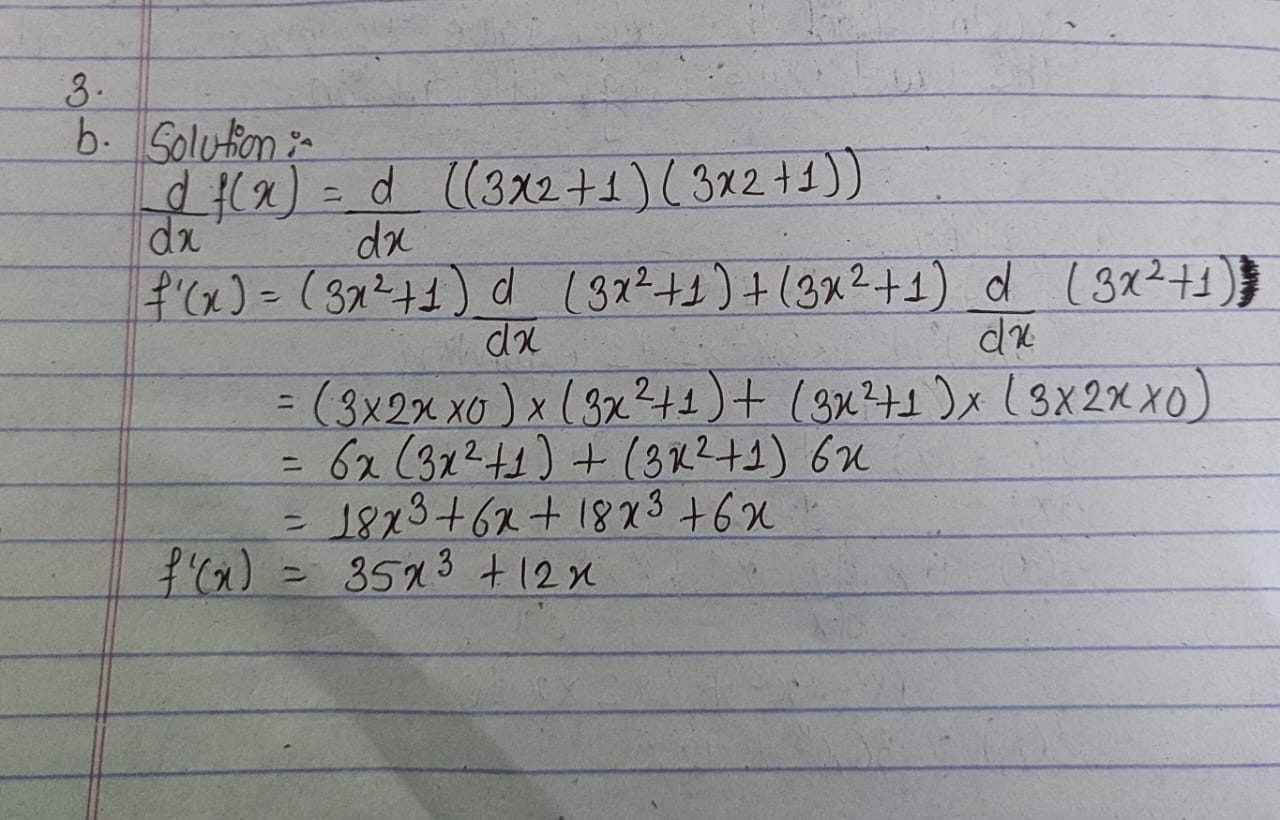 3.
b. Solution :-
d/dx f(x) = d/dx ((3x2+1)(3x2+1))
f'(x) = (3x²+1) d/dx (3x²+1) + (3x²+1) d/dx (3x²+1)
= (3×2x×0)×(3x²+1) + (3x²+1)×(3×2x×0)
= 6x(3x²+1) + (3x²+1) 6x
= 18x³+6x+18x³+6x
f'(x) = 35x³+12x